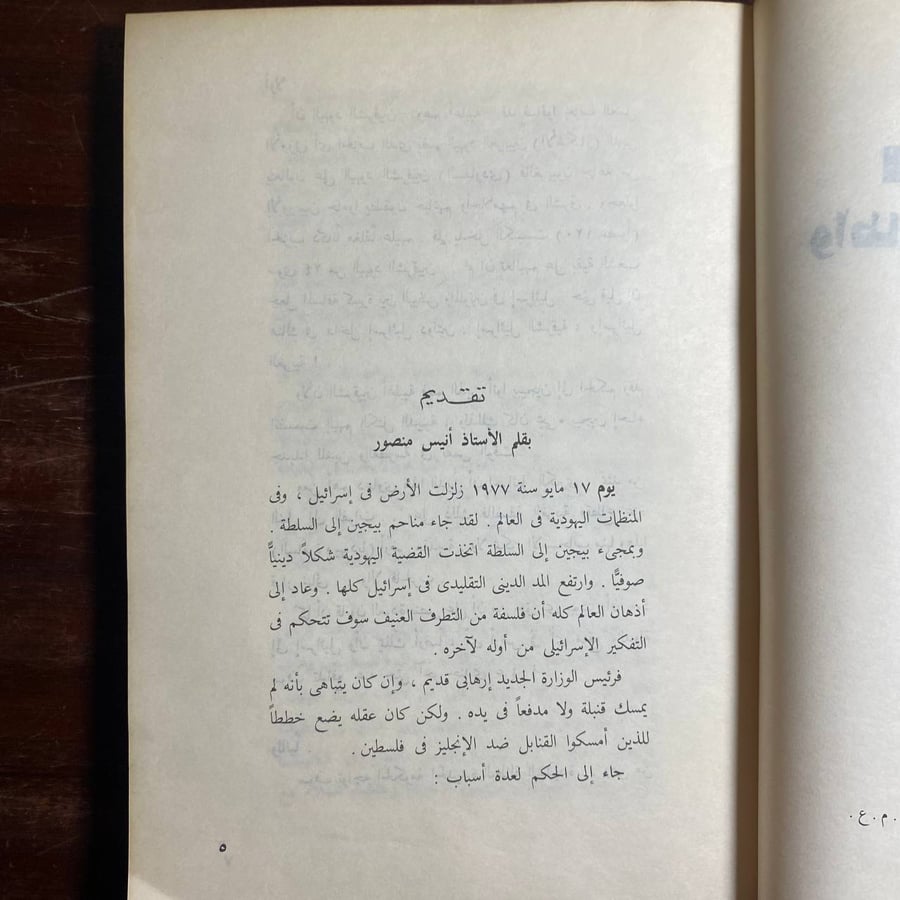 تقديم
بقلم الأستاذ أنيس منصور
يوم ١٧ مايو سنة ١٩٧٧ زلزلت الأرض فى إسرائيل ، وفى
المنظمات اليهودية فى العالم . لقد جاء مناحم بيجين إلى السلطة .
وبمجىء بيجين إلى السلطة اتخذت القضية اليهودية شكلاً دينيًّا
صوفيًّا . وارتفع المد الدينى التقليدى فى إسرائيل كلها . وعاد إلى
أذهان العالم كله أن فلسفة من التطرف العنيف سوف تتحكم فى
التفكير الإسرائيلى من أوله لآخره .
فرئيس الوزارة الجديد إرهابى قديم ، وإن كان يتباهى بأنه لم
يمسك قنبلة ولا مدفعاً فى يده . ولكن كان عقله يضع خططاً
للذين أمسكوا القنابل ضد الإنجليز فى فلسطين .
جاء إلى الحكم لعدة أسباب :
٥
م . ع .